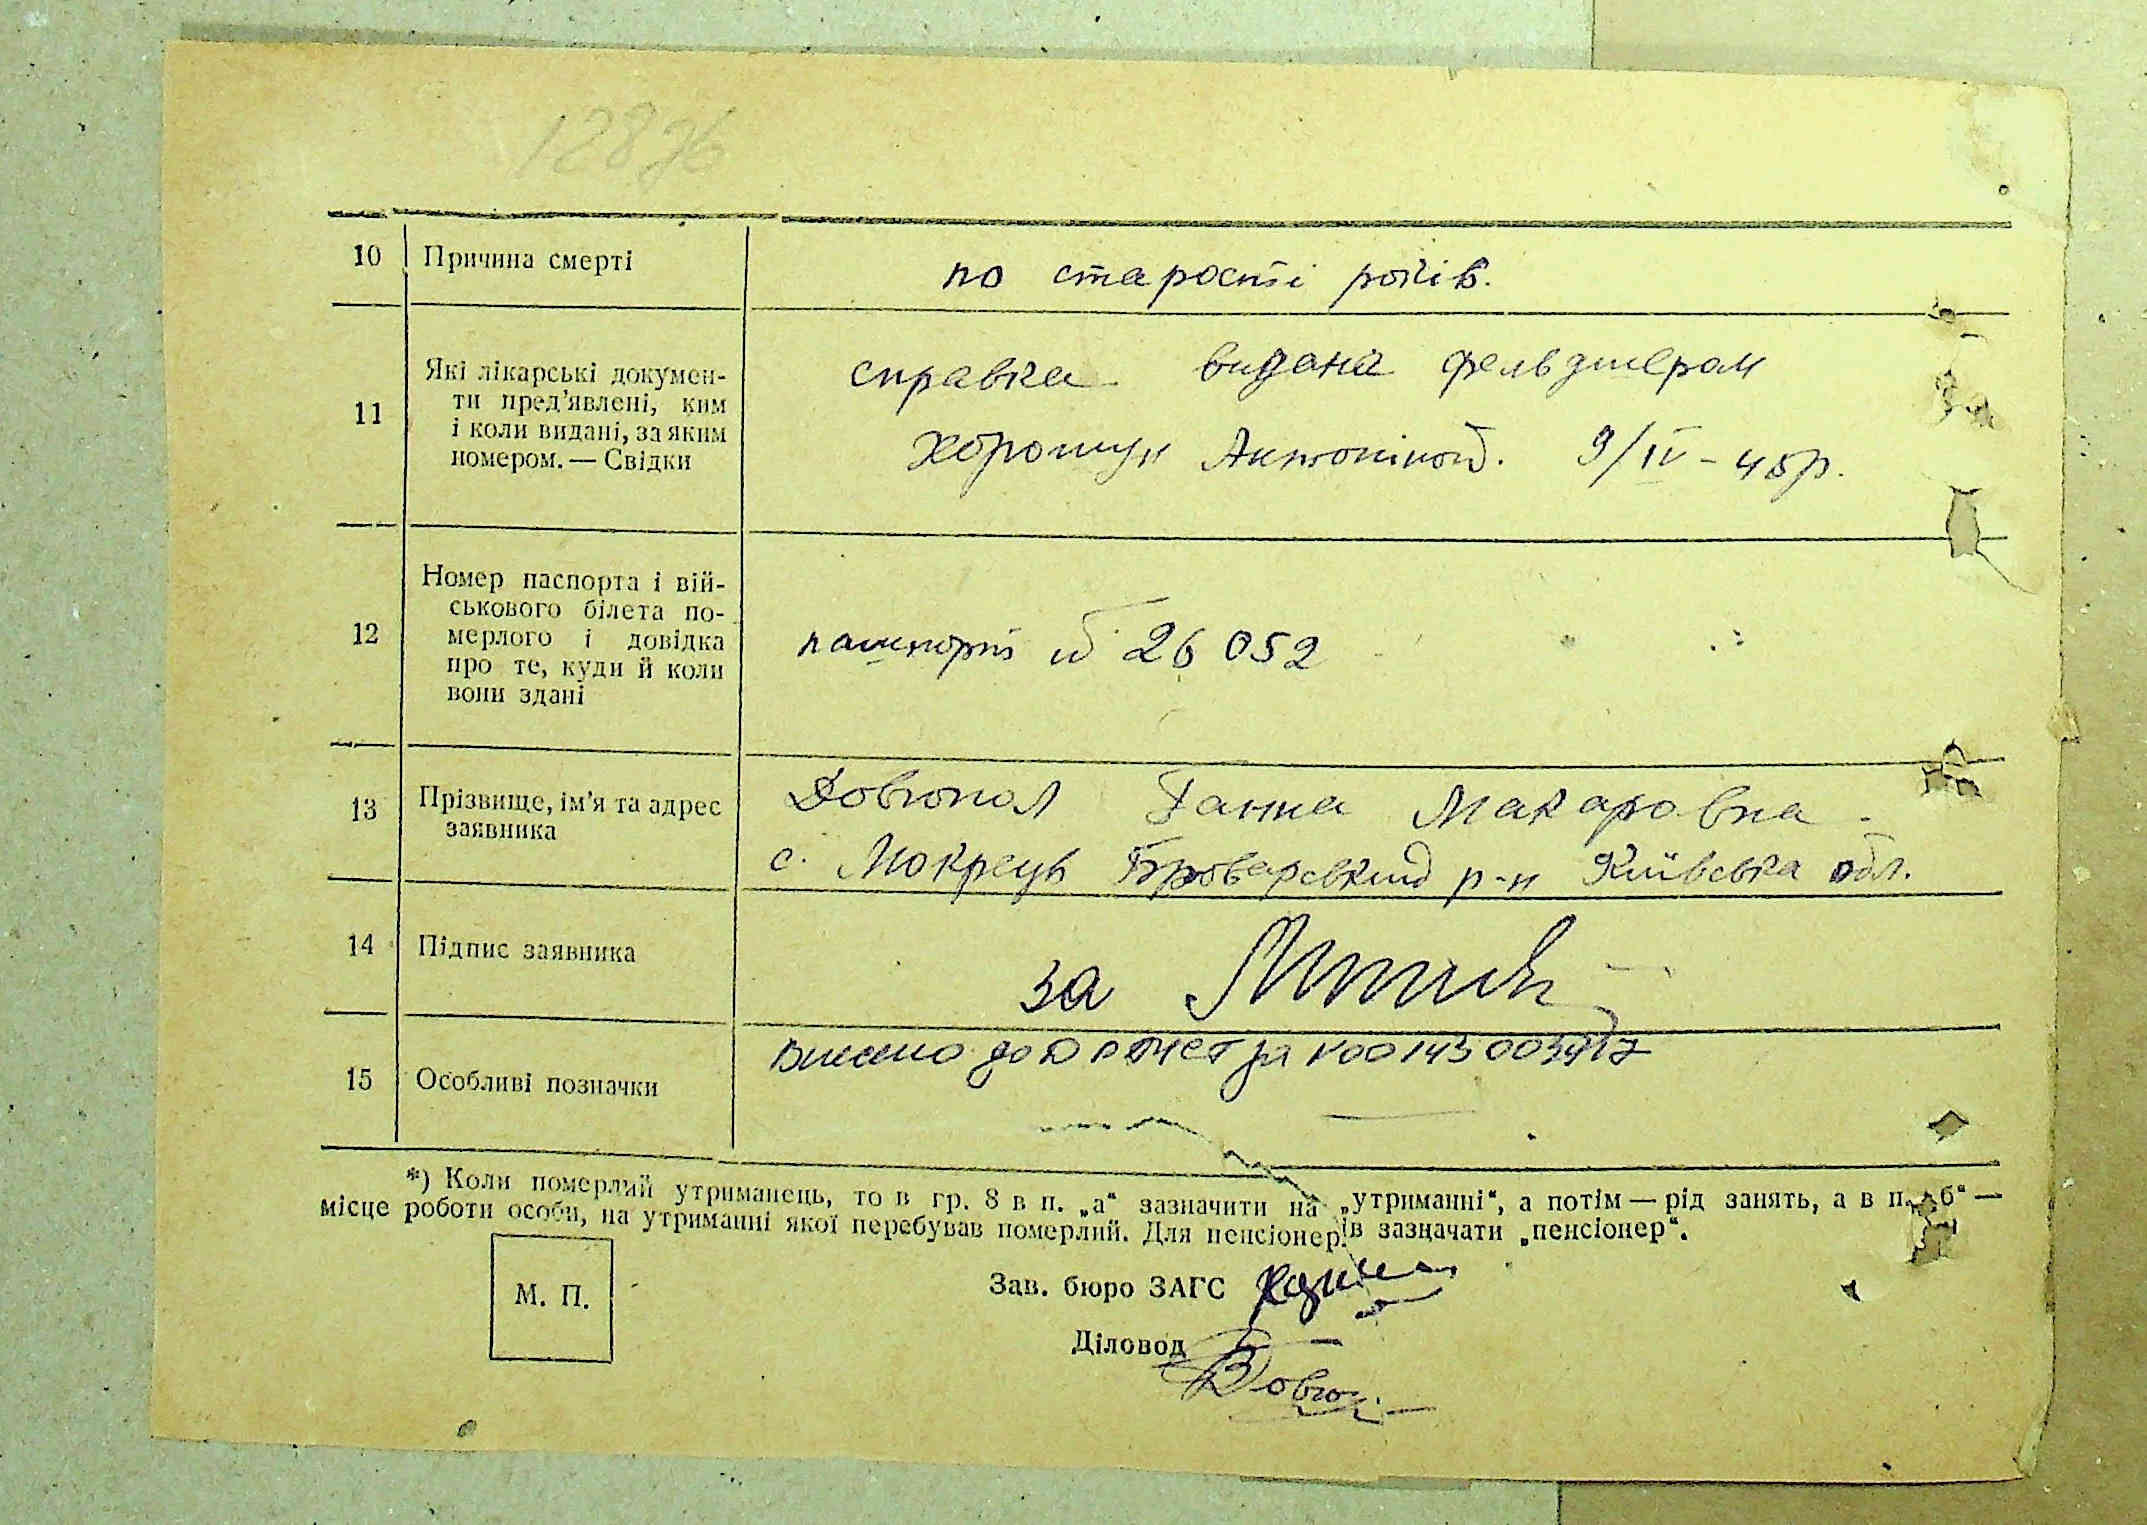 12876
10 Причина смерті по старості років.
11 Які лікарські докумен-
ти пред'явлені, ким
і коли видані, за яким
номером. — Свідки
справка видана фельдшером
Хорошун Антоніной. 9/IV - 45р.
12 Номер паспорта і вій-
ськового білета по-
мерлого і довідка
про те, куди й коли
вони здані
пашпорт 26 052
13 Прізвище, ім'я та адрес
заявника
Довгопол Ганна Макаровна.
с. Мокрець Броварський р-н Київська обл.
14 Підпис заявника за
15 Особливі позначки
Внесено до
*) Коли померлий утриманець, то в гр. 8 в п. „а“ зазначити на „утриманні“, а потім — рід занять, а в п. „б“ —
місце роботи особи, на утриманні якої перебував померлий. Для пенсіонерів зазначати „пенсіонер“.
М. П.
Зав. бюро ЗАГС
Діловод